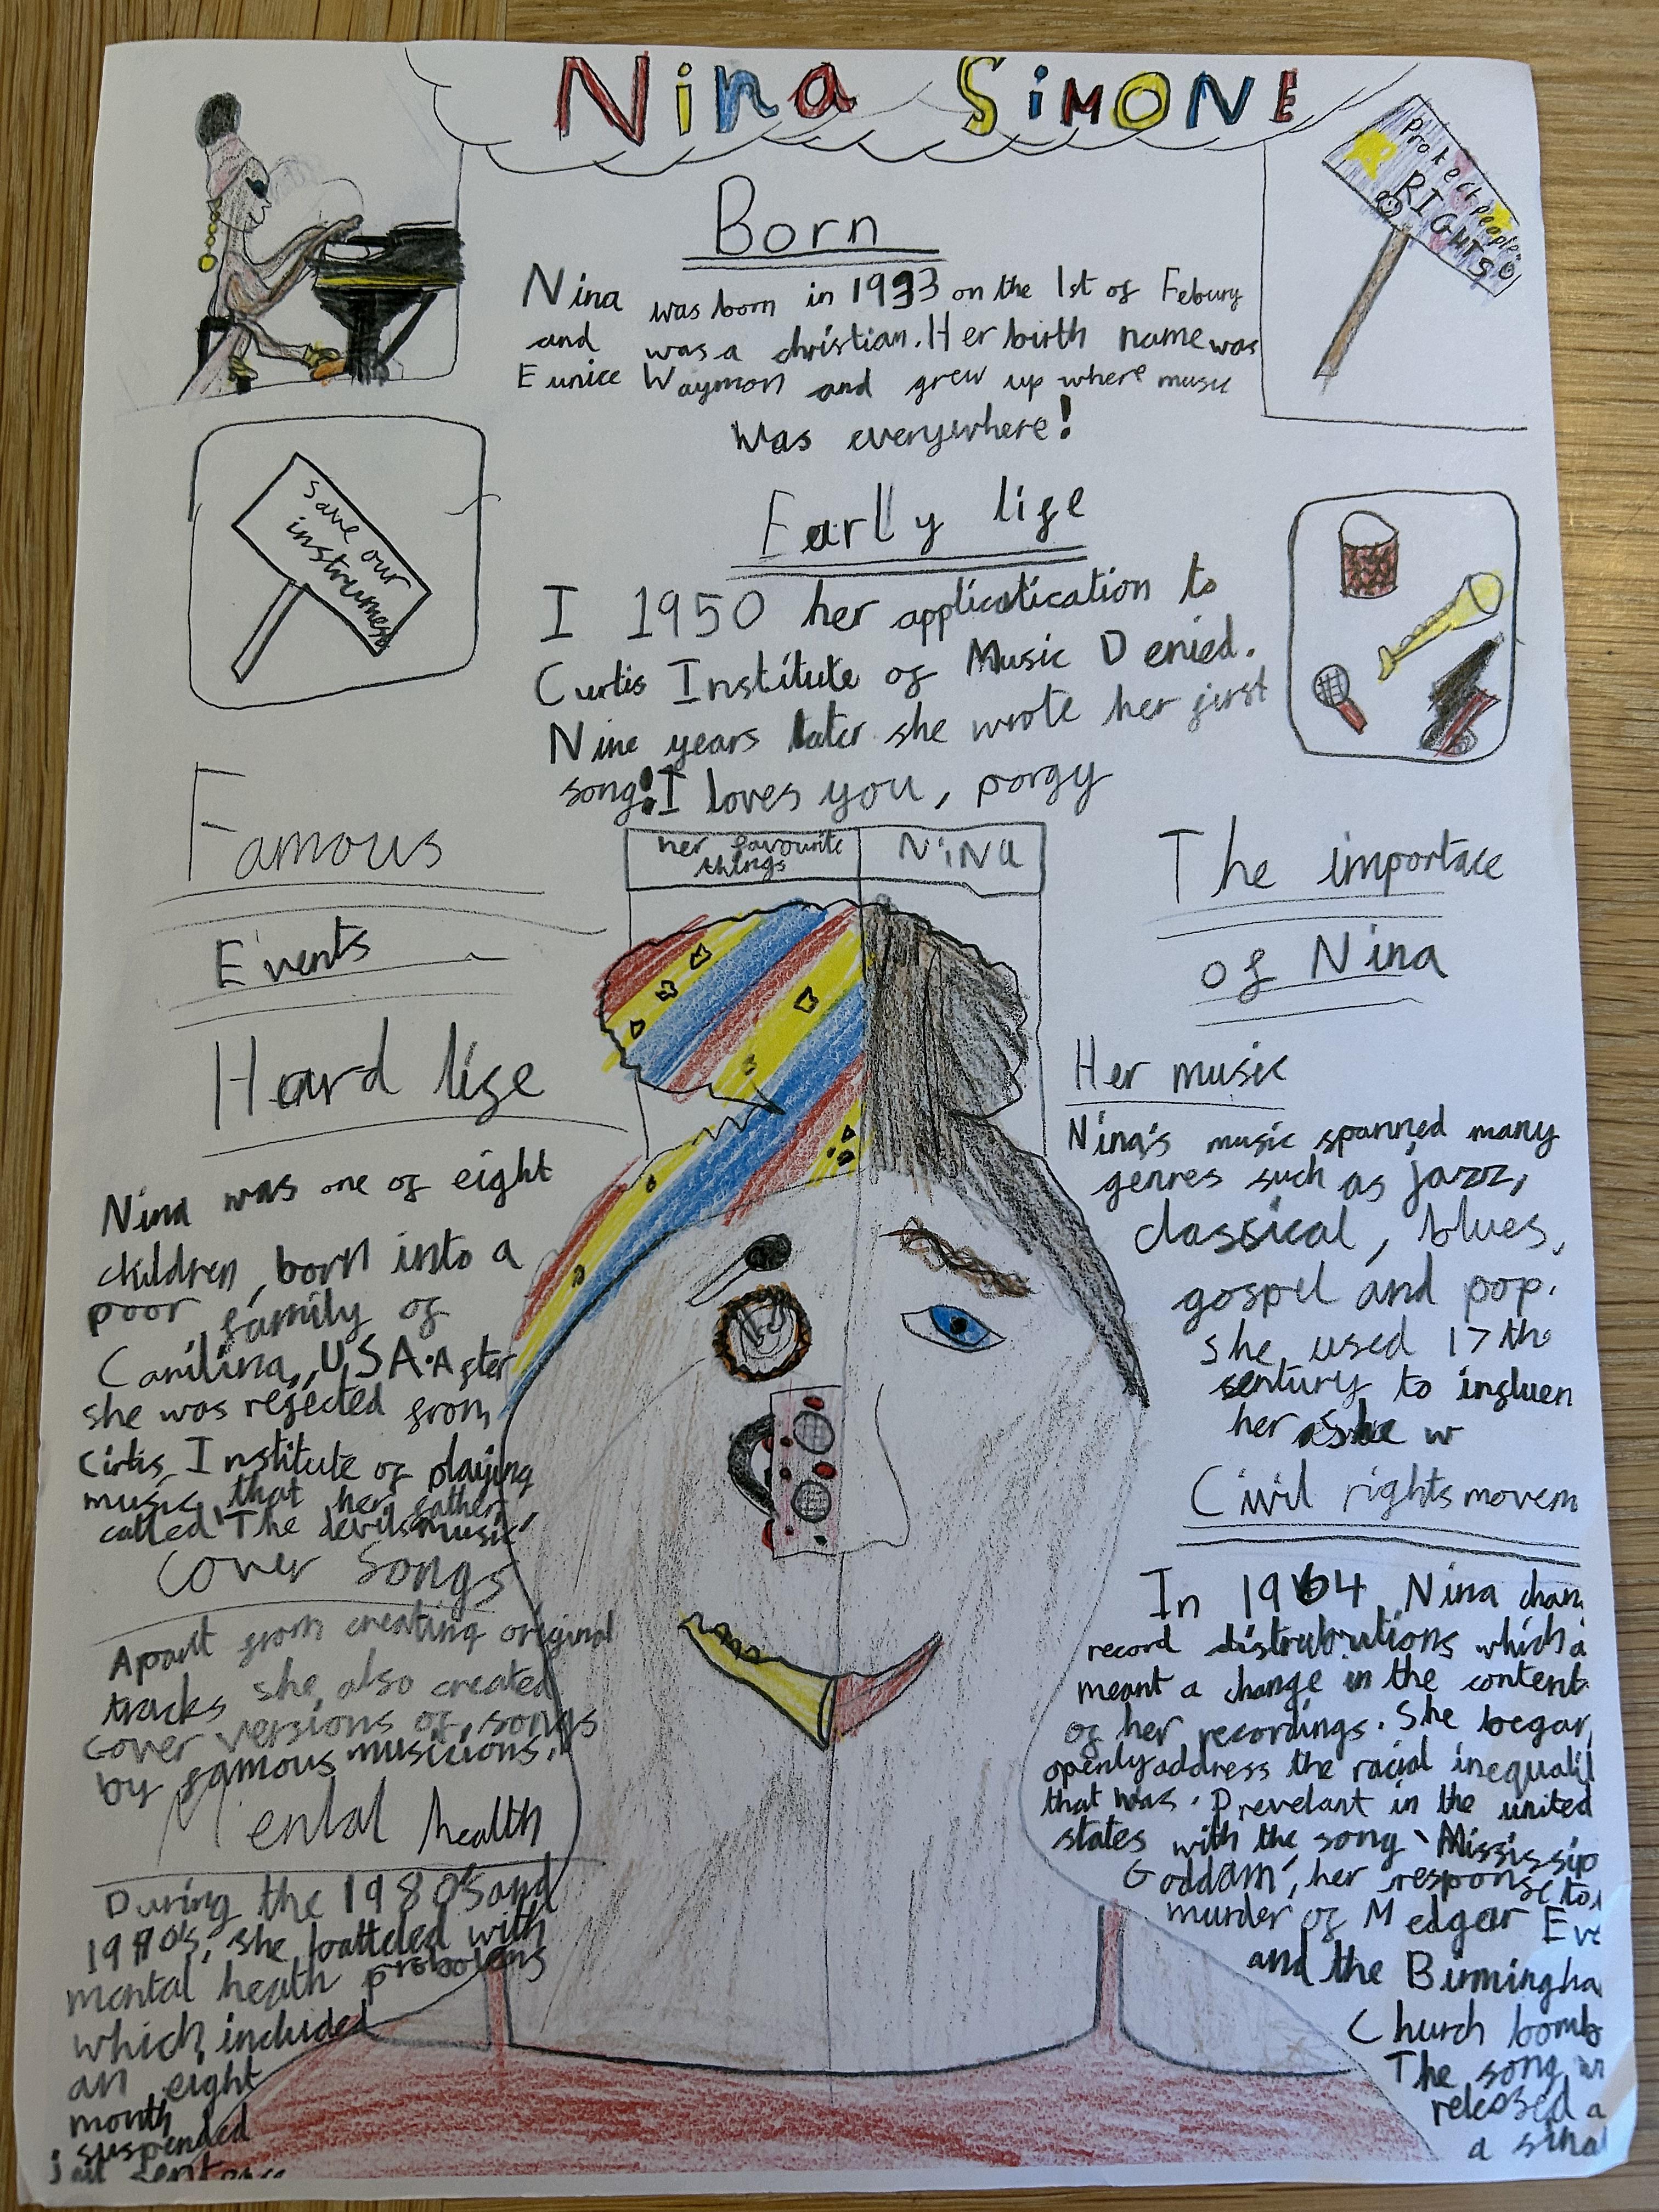 Nina SiMONE
Protect people's
RIGHTS
Born
Nina was born in 1933 on the 1st of Febury
and was a christian. Her birth name was
Eunice Waymon and grew up where music
was everywhere!
Save our
instrumest
Early life
I 1950 her applicatication to
Curtis Institute of Music Denied.
Nine years later she wrote her first
song! I loves you, porgy
her favourite
things
NiNa
Famous
Events
Hard life
Nina was one of eight
children, born into a
poor family of
Carilina, USA. After
she was rejected from
Cirtis Institute of playing
music, that her father,
called 'The devils music'
Cover Songs
Apart from creating original
tracks she also created
cover versions of songs
by famous musicions.
Mental health
During the 1980's and
1990's, she batteled with
mental heath probolems
which included
an eight
month
suspended
jail sentence
The importace
of Nina
Her music
Nina's music spanned many
genres such as jazz,
classical, blues,
gospel and pop.
she used 17th
sentury to influen
her as she w
Civil rights movem
In 1964 Nina chan
record distrubutions which a
meant a change in the content
of her recordings. She began
openly address the racial inequalit
that was. Prevelant in the united
states with the song 'Mississip
Goddam', her response to
murder of Medgar Eve
and the Birmingha
Church bomb
The song w
released a
a sina